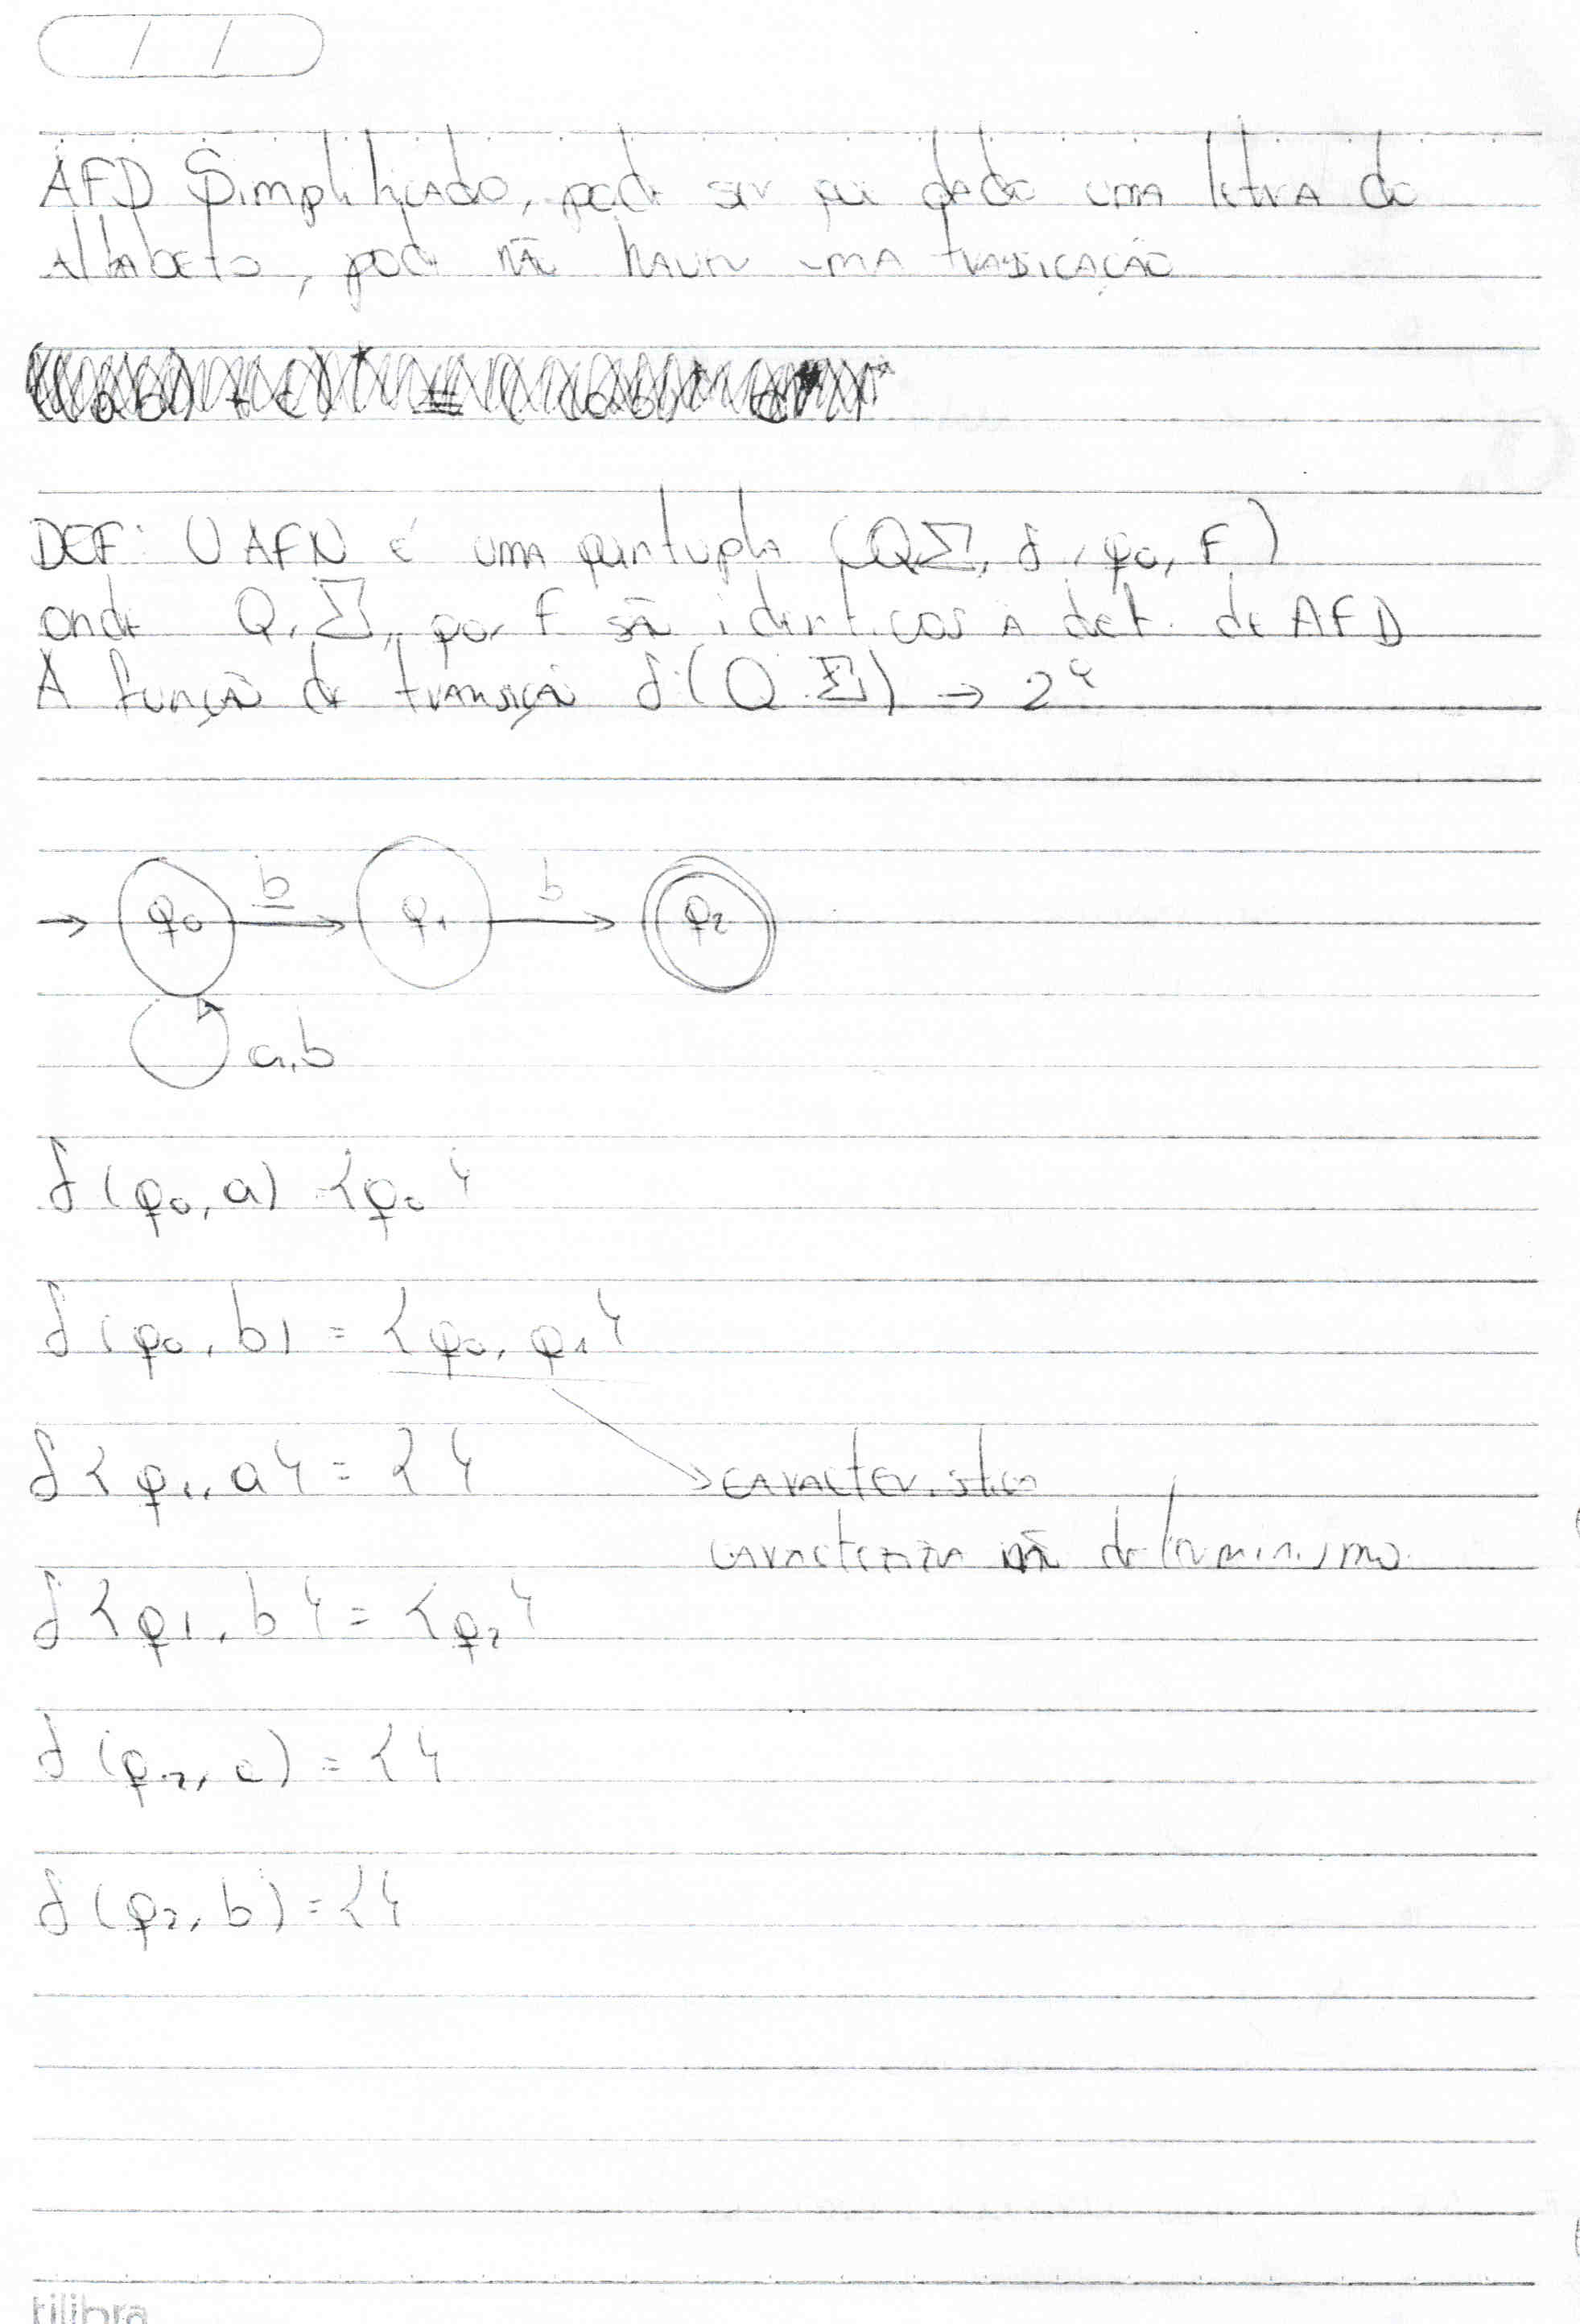 AFD Simplificado, pode ser que dado uma letra do
alfabeto, pode não haver uma
DEF: U AFN é uma quintupla (Q Σ, δ, q0, F)
onde Q, Σ, q0, F são identicos a def. de AFD
A função de transição δ:(Q Σ) → 2
q0 b q1 b q2
a,b
δ(q0, a) {q0}
δ(q0, b) = {q0, q1}
δ{q1, a} = { }
característica
caracteriza não determinismo
δ{q1, b} = {q2}
δ(q2, a) = { }
δ(q2, b) = { }
tilibra